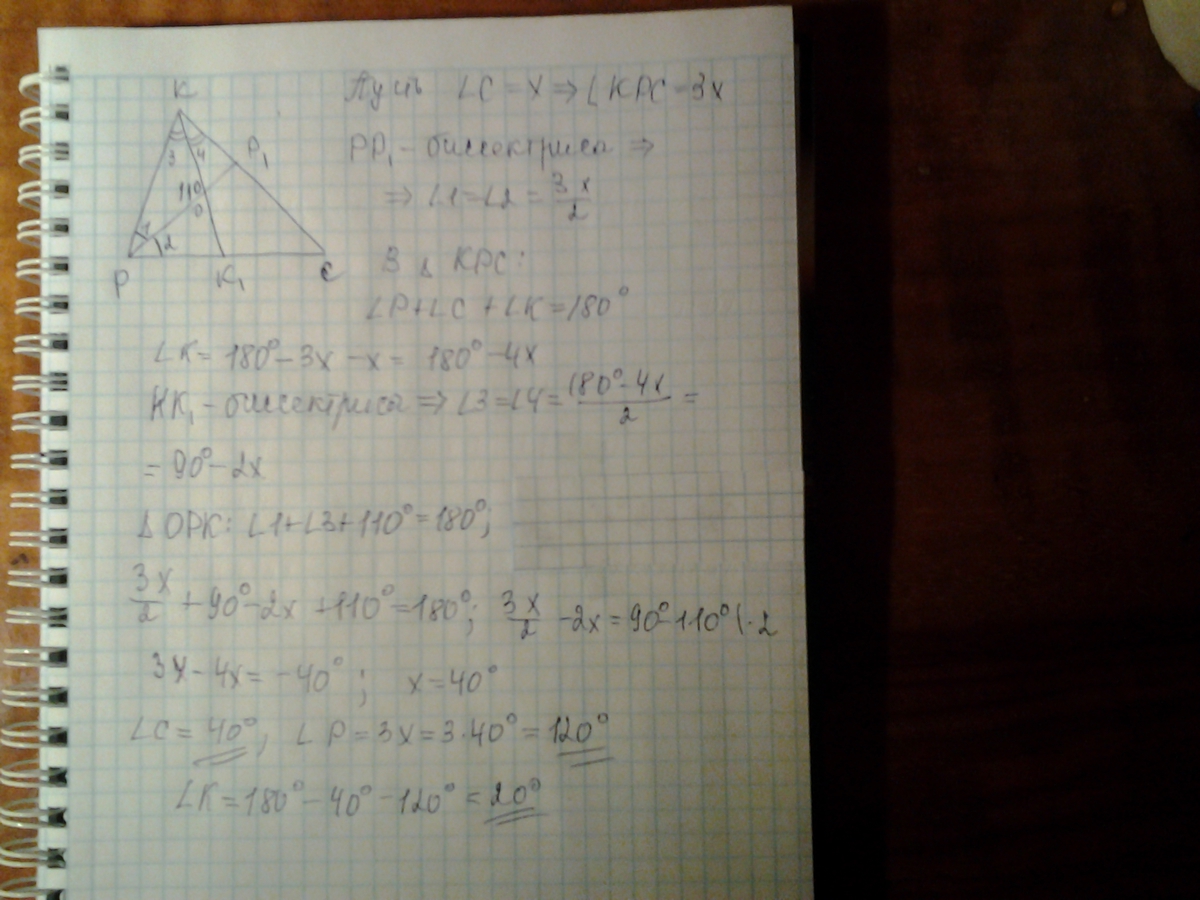 K
3 4 P₁
110°
O
1 2
P K₁ C
Пусть ∠C = x ⇒ ∠KPC = 3x
PP₁ - биссектриса ⇒
⇒ ∠1 = ∠2 = 3x/2
В △ KPC:
∠P + ∠C + ∠K = 180°
∠K = 180° - 3x - x = 180° - 4x
KK₁ - биссектриса ⇒ ∠3 = ∠4 = (180° - 4x)/2 =
= 90° - 2x
△ OPK: ∠1 + ∠3 + 110° = 180°;
3x/2 + 90° - 2x + 110° = 180°; 3x/2 - 2x = 90° - 110° | · 2
3x - 4x = -40°; x = 40°
∠C = 40°; ∠P = 3x = 3·40° = 120°
∠K = 180° - 40° - 120° = 20°